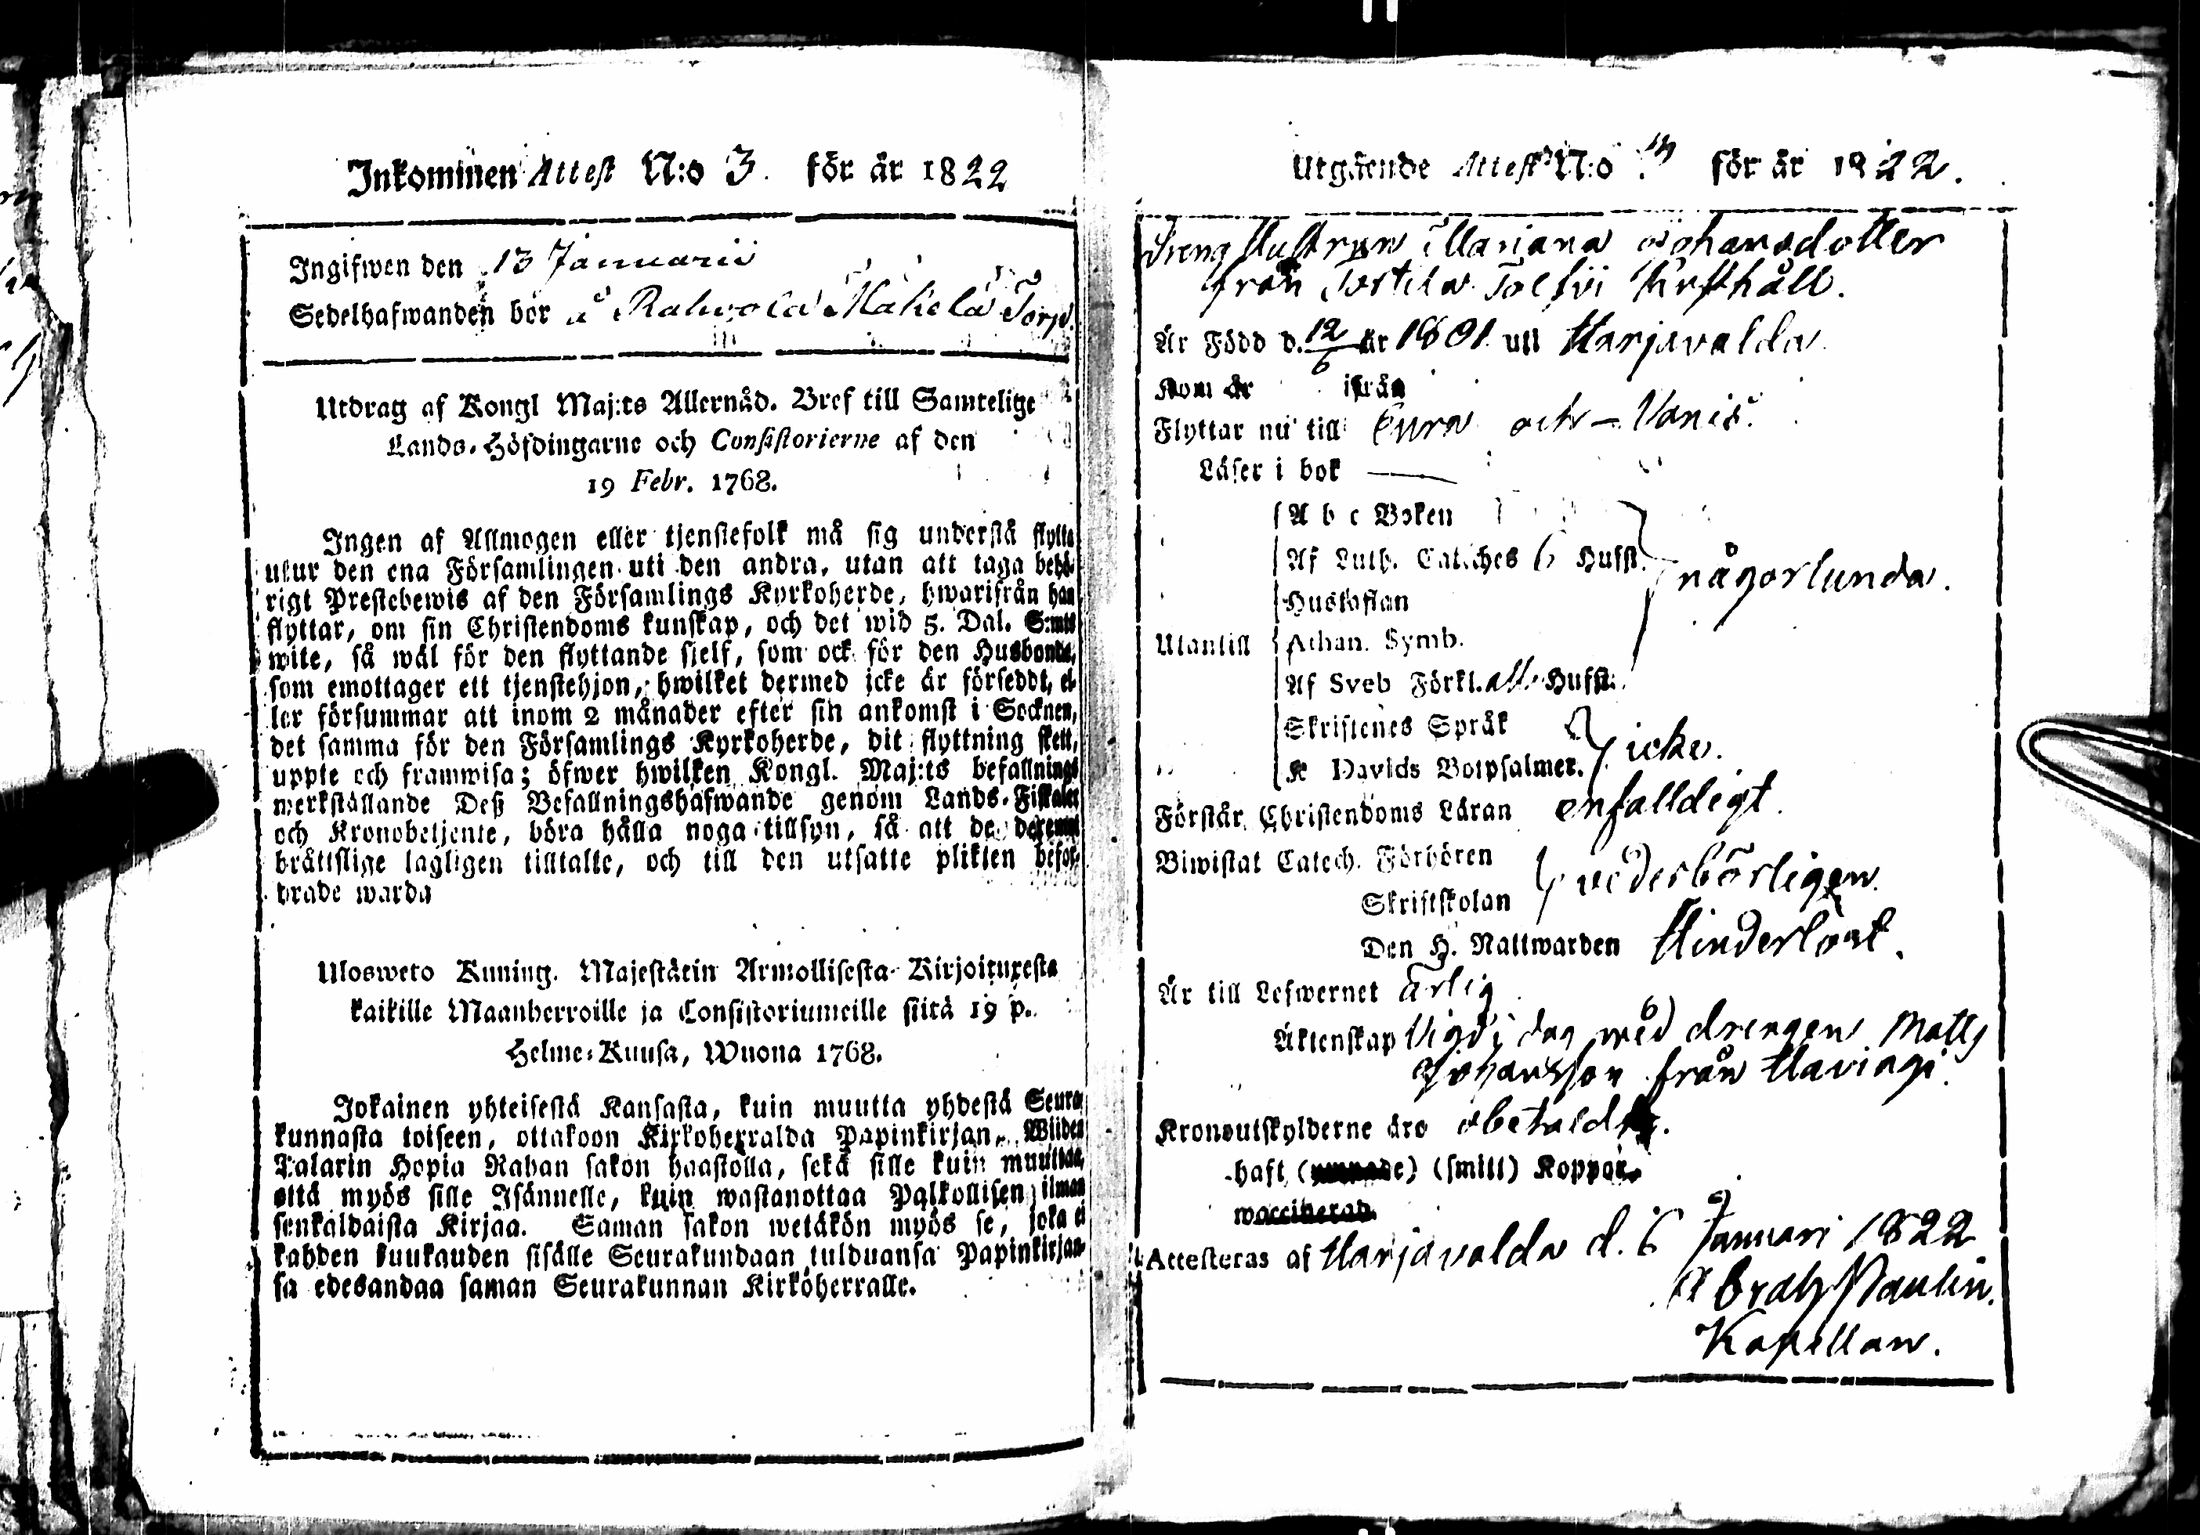 Inkommen Attest N:o 3. för år 1822
Ingifwen den 13 Januarii
Sedelhafwanden bor å Rahvola Mäkelä Torp.
Utdrag af Kongl Maj:ts Allernåd. Bref till Samtelige
Lands-Höfdingarne och Consistorierne af den
19 Febr. 1768.
Ingen af Allmogen eller tjenstefolk må sig understå flytta
utur den ena Församlingen uti den andra, utan att taga behö-
rigt Prestebewis af den Församlings Kyrkoherde, hwarifrån han
flyttar, om sin Christendoms kunskap, och det wid 5. Dal. S:mts
wite, så wäl för den flyttande sielf, som ock för den Husbonde,
som emottager ett tjenstehjon, hwilket dermed icke är försedt, el-
ler försummar att inom 2 månader efter sin ankomst i Socknen,
det samma för den Församlings Kyrkoherde, dit flyttning skett,
uppte och framwisa; öfwer hwilken Kongl. Maj:ts befallnings
werkställande Deß Befallningshafwande genom Lands-Fiskaler
och Kronobetjente, böra hålla noga tillsyn, så att de deremot
bråttslige lagligen tilltalte, och till den utsatte plikten befor-
drade warda
Ulosweto Kuning. Majestätin Armollisesta Kirjoituxesta
kaikille Maanherroille ja Consistoriumeille siitä 19 p.
Helme-Kuusa, Wuona 1768.
Jokainen yhteisestä Kansasta, kuin muutta yhdestä Seura-
kunnasta toiseen, ottakoon Kirkoherralda Papinkirjan, Wiiden
Talarin Hopia Rahan sakon haastolla, sekä sille kuin muuttaa,
että myös sille Isännelle, kuin wastanottaa Palkollisen ilman
senkaldaista Kirjaa. Saman sakon wetäkön myös se, joka ei
kahden kuukauden sisälle Seurakundaan tulduansa Papinkirjaan-
sa edesandaa saman Seurakunnan Kirköherralle.
Utgående Attest N:o för år 1822.
Dreng Hustrun Mariana Johansdotter
från Tolfvi Rusthåll.
Är Född d. 12/6 år 1801 uti Harjavalda
Kom år ifrån
Flyttar nu till Eura och Vanis.
Läser i bok —
A b c Boken
Af Luth. Catches 6 Hufst.
Hustaflan
någorlunda.
Utantill
Athan. Symb.
Af Sveb Förkl. alla Hufst.
Skriftenes Språk
icke.
K Davids Botpsalmer.
Förstår Christendoms Läran enfalldigt.
Biwistat Catech. Förhören
vederbörligen
Skriftskolan
Den H. Nattwarden Hinderlöst.
Är till Lefwernet ärlig
Äktenskap Vigd i dag med drengen Matts
Johansson från Haviagi.
Kronoutskylderne äro obetalde.
haft (smitt) Koppor.
waccinerad
Attesteras af Harjavalda d. 6 Januari 1822
Abrah Paulin.
Kapellan.